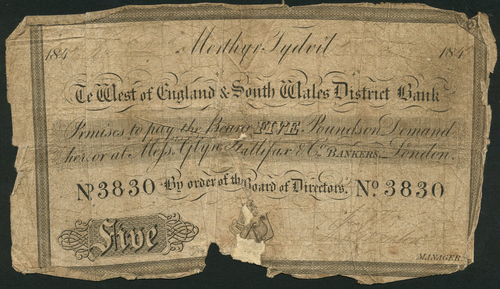 184 Merthyr Tydvil 184
Te West of England & South Wales District Bank
Promises to pay the Bearer FIVE Pounds on Demand
here or at Messrs. Glyn Hallifax & Co. BANKERS London.
No 3830 By order of the Board of Directors. No 3830
Five
MANAGER